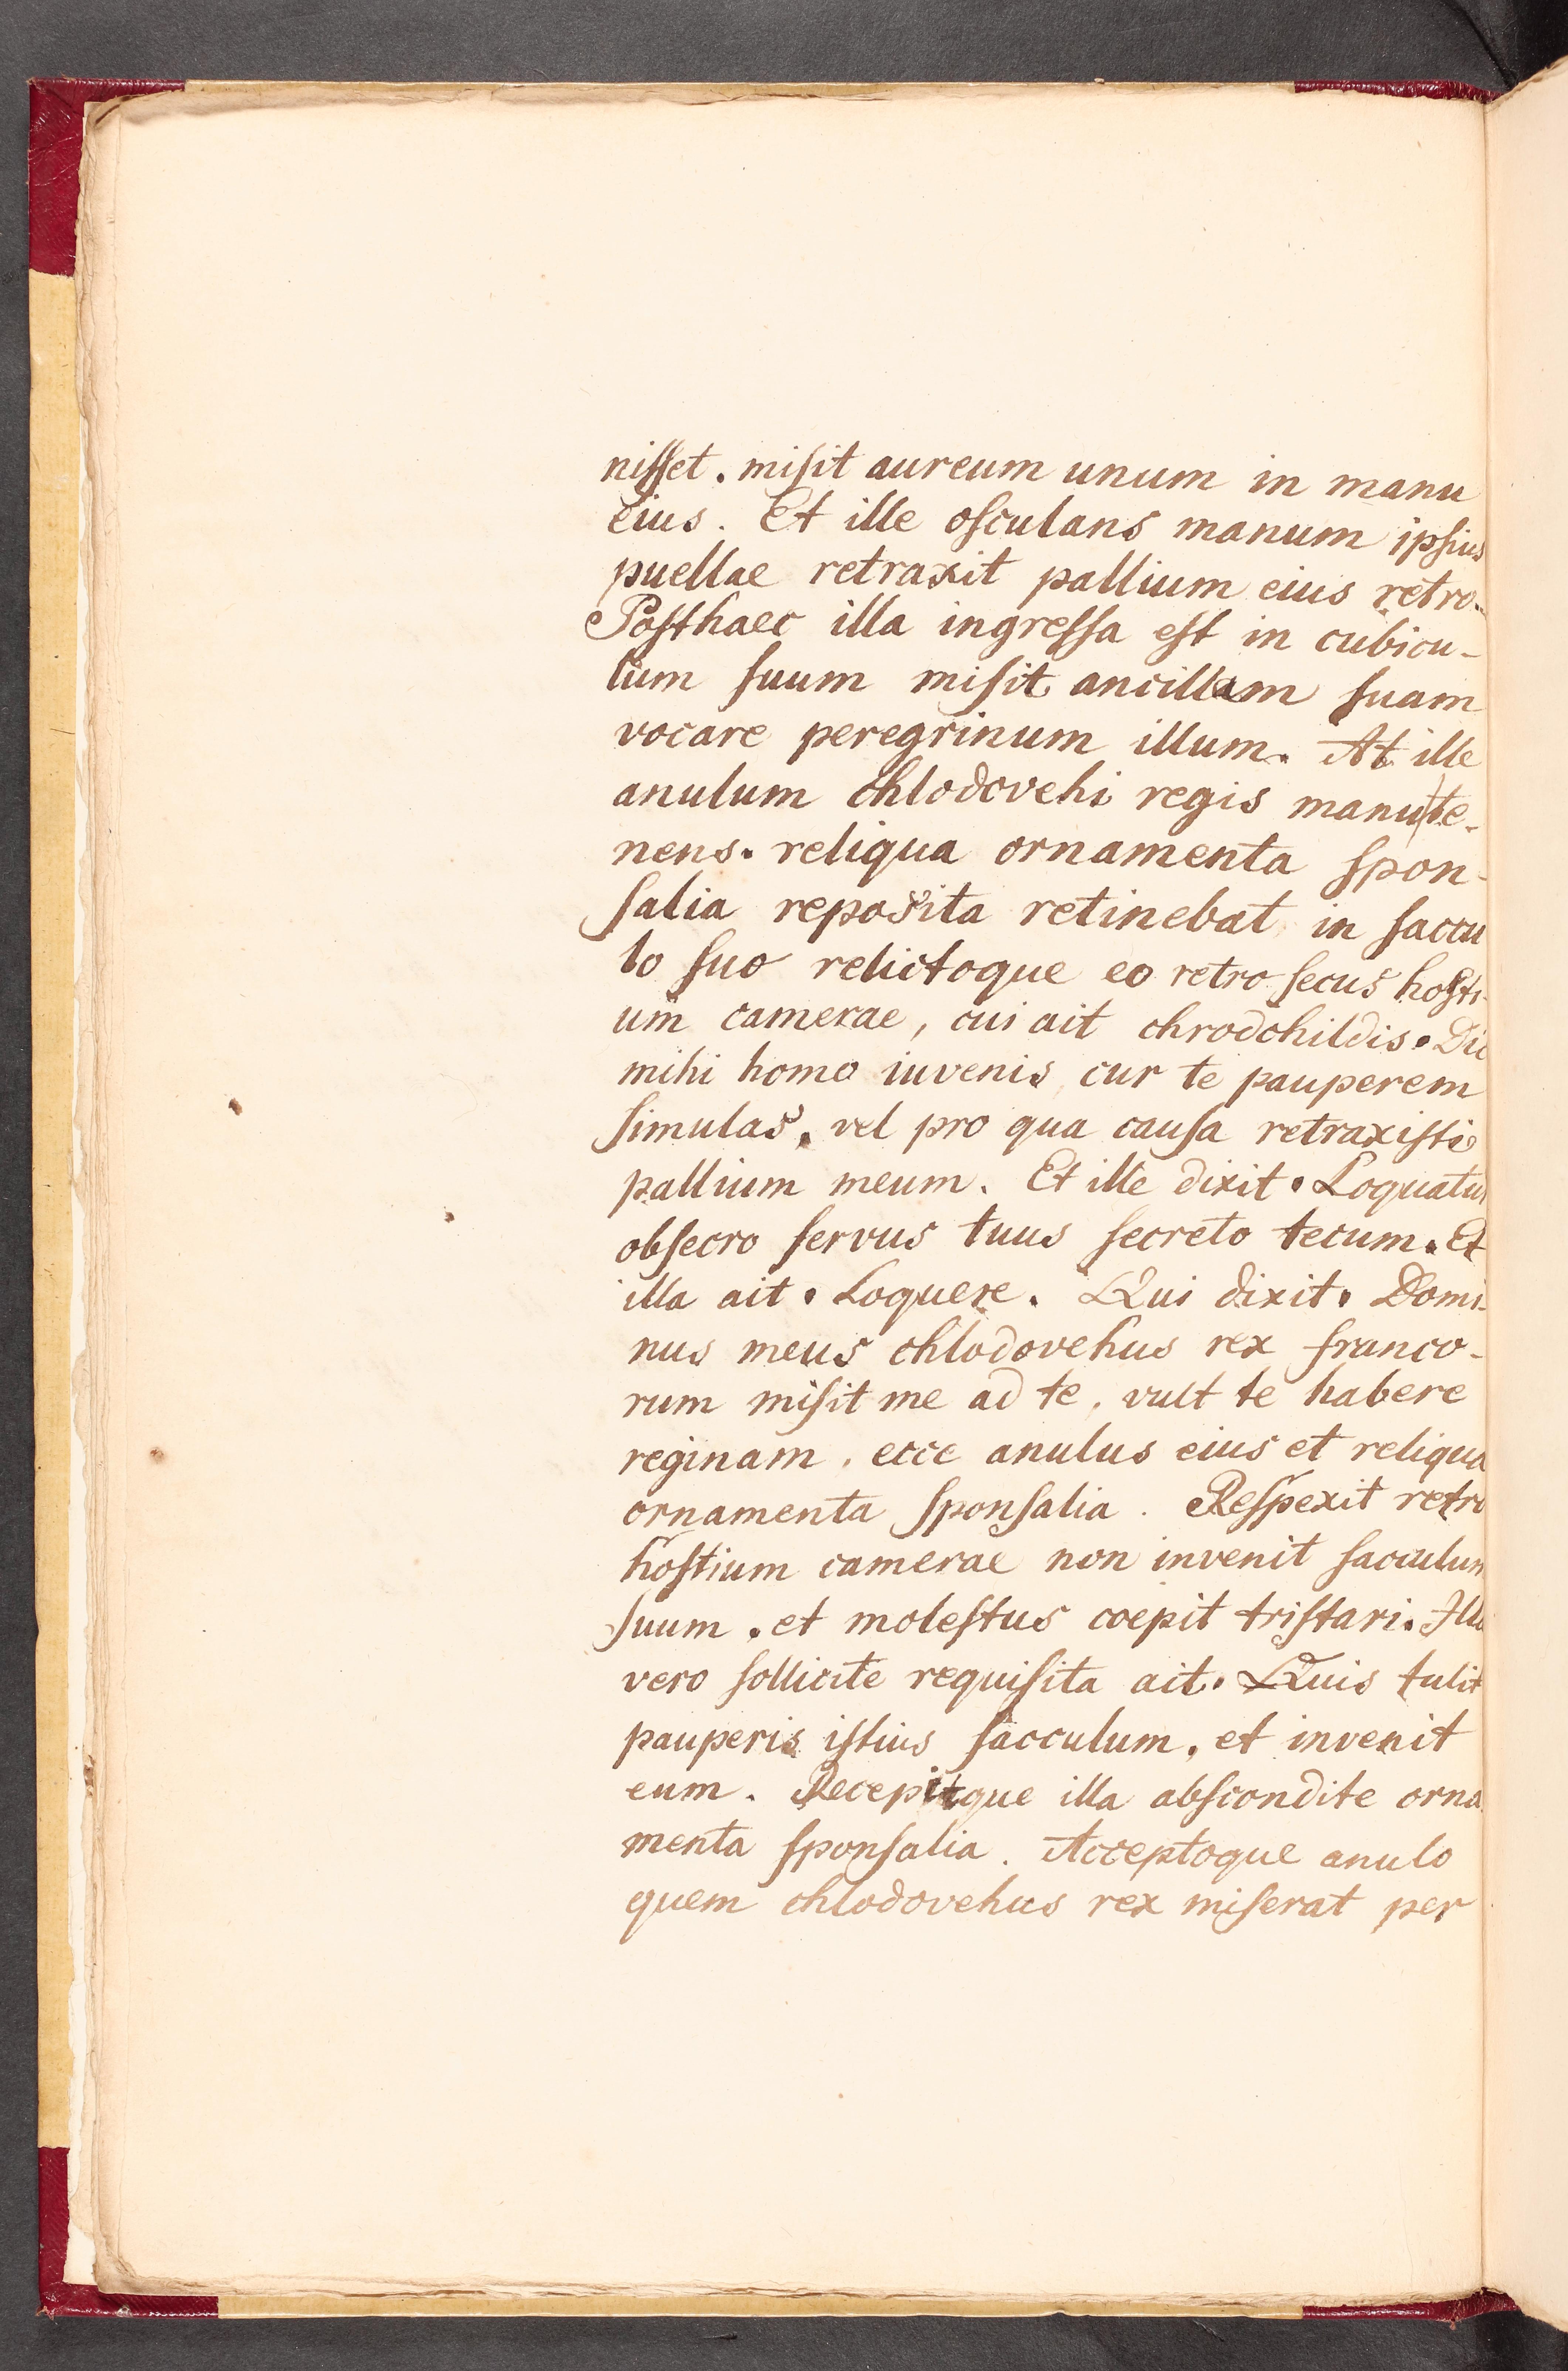 niſſet. miſit aureum unum in manu
eius. Et ille oſculans manum ipſius
puellae retraxit pallium eius retro.
Poſthaec illa ingreſſa eſt in cubicu-
lum ſuum miſit ancillam ſuam
vocare peregrinum illum. At ille
anulum chlodovehi regis manu|te-
nens. reliqua ornamenta ſpon-
ſalia reposita retinebat in ſaccu
lo ſuo relictoque eo retro ſecus hoſti-
um camerae, cui ait chrodchildis. Dic
mihi homo iuvenis cur te pauperem
ſimulas, vel pro qua cauſa retraxiſti
pallium meum. Et ille dixit. Loquatur
obſecro ſervus tuus ſecreto tecum. Et
illa ait. Loquere. Qui dixit. Domi-
nus meus chlodovehus rex franco-
rum miſit me ad te, vult te habere
reginam. ecce anulus eius et reliqua
ornamenta ſponſalia. Reſpexit retro
hoſtium camerae non invenit ſacculum
ſuum. et moleſtus coepit triſtari. Illa
vero ſollicite requiſita ait. Quis tulit
pauperis iſtius ſacculum, et invenit
eum. Recepitque illa abſcondite orna
menta ſponſalia. Acceptoque anulo
quem chlodovehus rex miſerat per